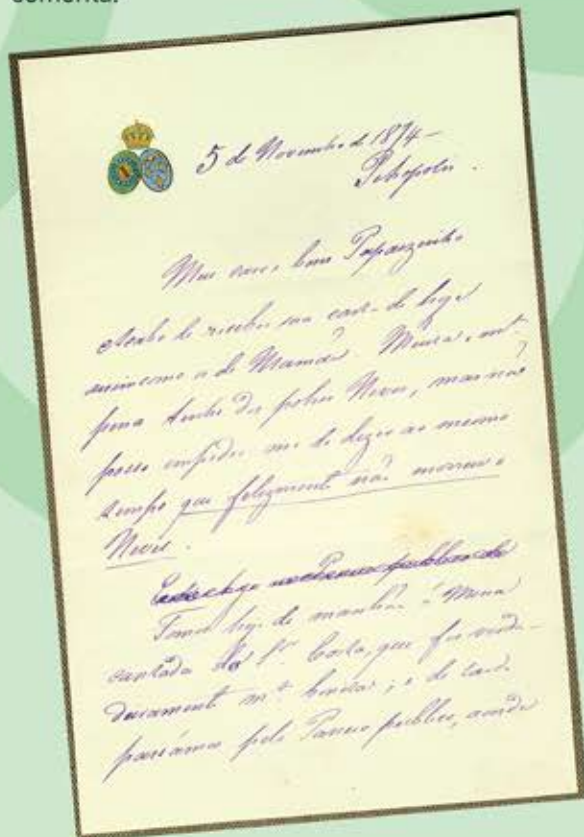 comenta.
5 de Novembro de 1874 –
Petropolis.
Meu caro e bom Papaezinho
Acabo de receber sua carta de hoje
assim como a de Mamãe. Muita, mt.ª
pena tenho dos pobres Neves, mas não
posso impedir-me de dizer ao mesmo
tempo que felizmente não morreu o
Neves.
Passeio publico de
Fomos hoje de manhã á Missa
cantada do Sr. Costa, que foi verda-
deiramente mt.º bonita; e de tarde
passeámos pelo Passeio publico, aonde